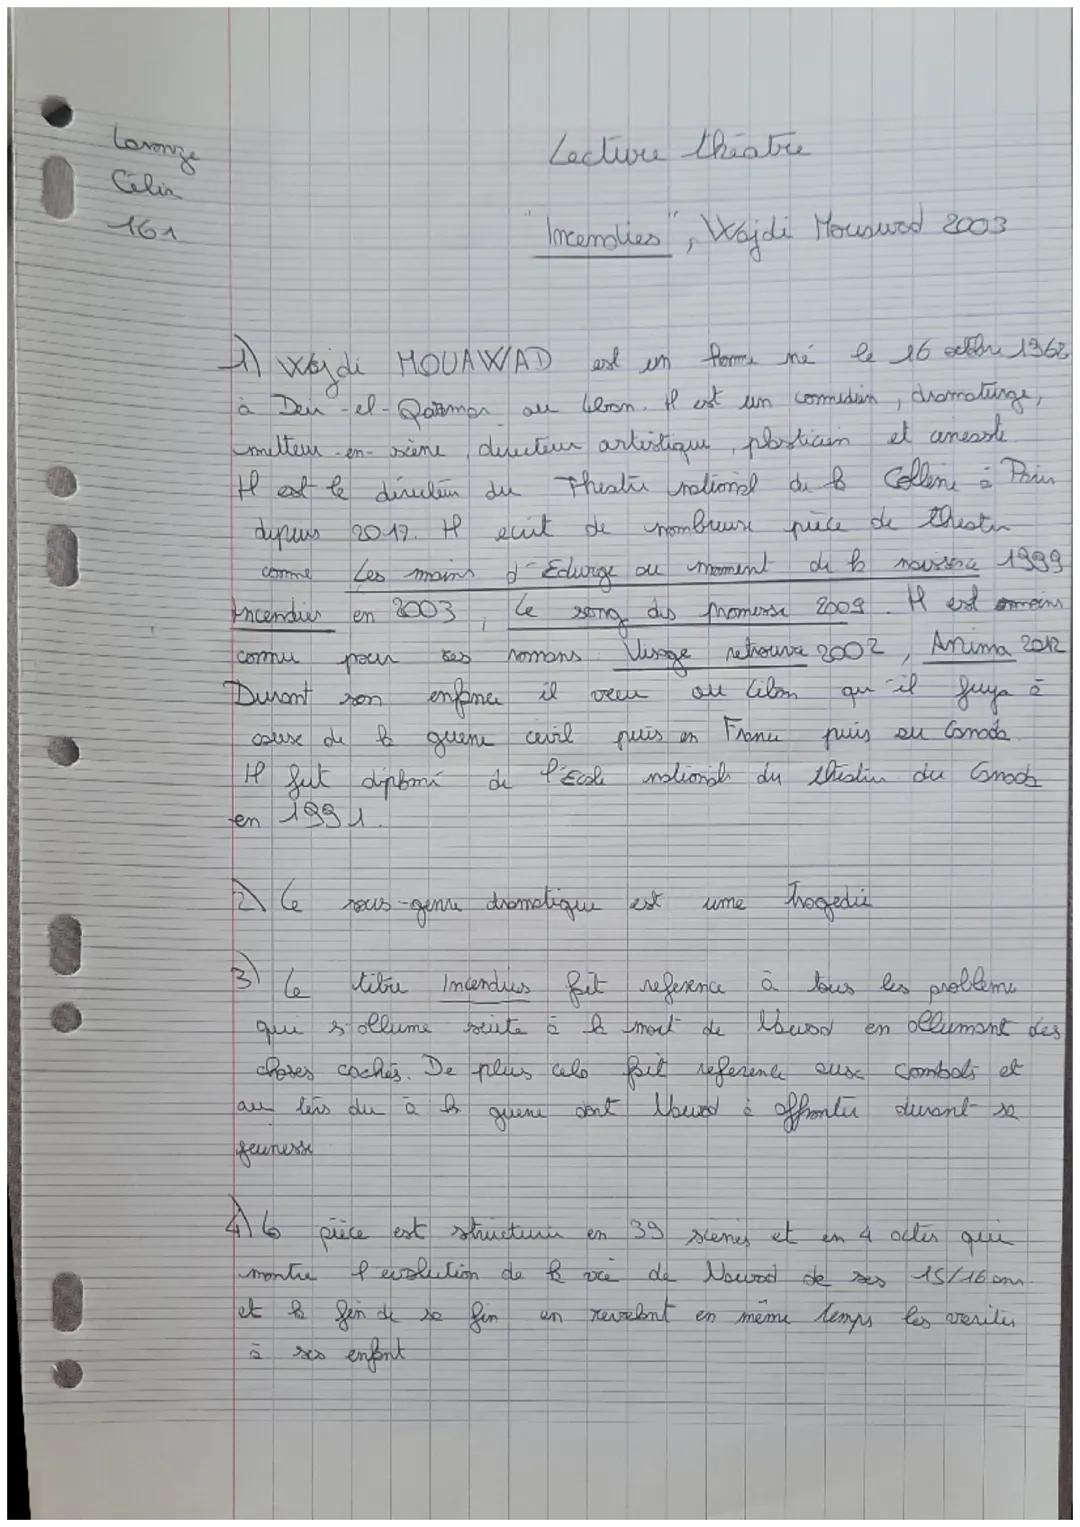 Célia
161
Lecture théatre
"Incendies", Wajdi Mouawad 2003
1) Wajdi MOUAWAD est un homme né le 16 octobre 1968
à Deir-el-Qamar au Liban. Il est un comedien, dramaturge,
metteur-en-scène, directeur artistique, plasticien et cineaste
Il est le directeur du Theatre national de la Colline à Paris
depuis 2017. Il ecrit de nombreuse pièce de theatre
comme Les mains d'Edwige au moment de la naissance 1999
Incendies en 2003, Le sang des promesse 2009. Il est moins
connu pour ses romans Visage retrouvé 2002, Anima 2012
Durant son enfance il vecu au Liban qu'il fuya à
cause de la guerre civil puis en France puis au Canada.
Il fut diplomé de l'Ecole nationale du théatre du Canada
en 1991.
2) Le sous-genre dramatique est une tragedie
3) Le titre Incendies fait reference à tous les probleme
qui s'allume suite à la mort de Nawal en allumant des
choses cachés. De plus cela fait reference aux combats et
au tirs du à la guerre dont Nawal à affronter durant sa
jeunesse
4) La pièce est structuré en 39 scenes et en 4 actes qui
montre l'evolution de la vie de Nawal de ses 15/16 ans
et la fin de sa fin en revelant en même temps les verités
à ses enfant